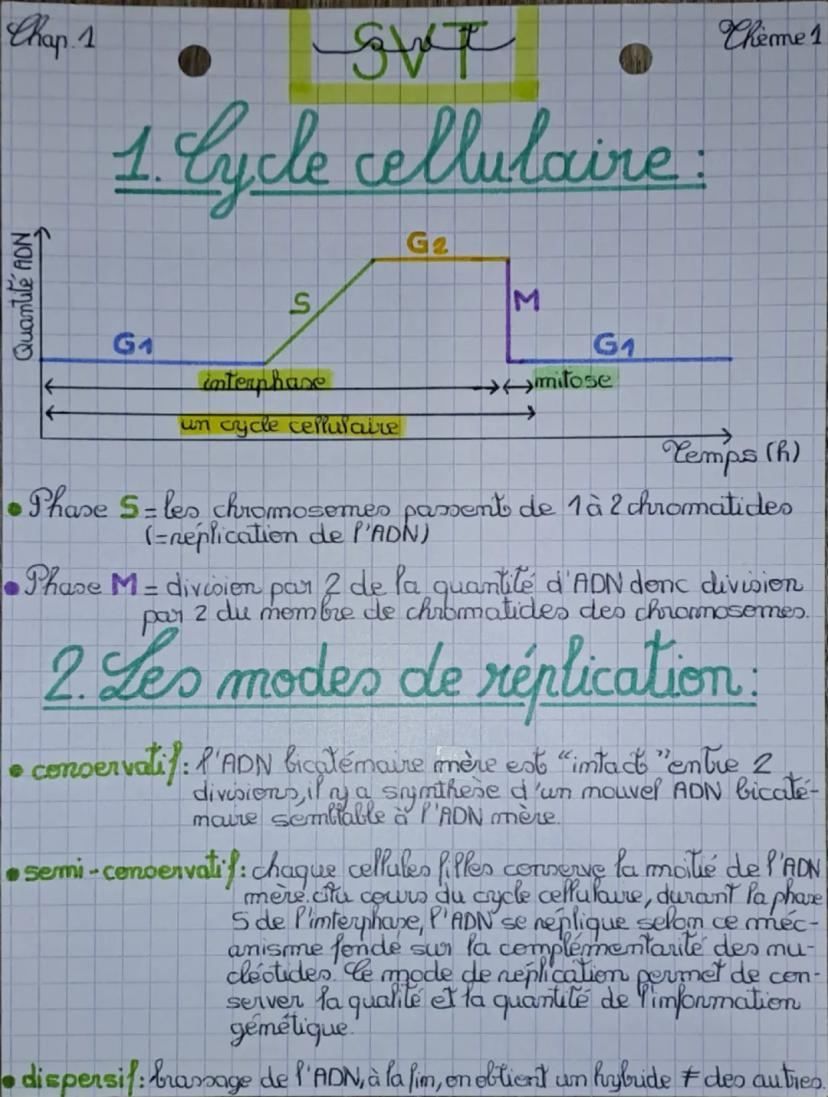 Chap.1
SVT
Thème 1
1. Cycle cellulaire :
Quantité ADN
G1
S
G2
M
G1
interphase
mitose
un cycle cellulaire
Temps (h)
• Phase S = les chromosomes passent de 1 à 2 chromatides
(= réplication de l'ADN)
• Phase M = division par 2 de la quantité d'ADN donc division
par 2 du nombre de chromatides des chromosomes.
2. Les modes de réplication :
• conservatif : l'ADN bicaténaire mère est "intact" entre 2
divisions, il y a synthèse d'un nouvel ADN bicaté-
naire semblable à l'ADN mère.
• semi-conservatif : chaque cellules filles conserve la moitié de l'ADN
mère. Au cours du cycle cellulaire, durant la phase
S de l'interphase, l'ADN se réplique selon ce méc-
anisme fondé sur la complémentarité des nu-
cléotides. Ce mode de réplication permet de con-
server la qualité et la quantité de l'information
génétique.
• dispersif : brassage de l'ADN, à la fin, on obtient un hybride ≠ des autres.